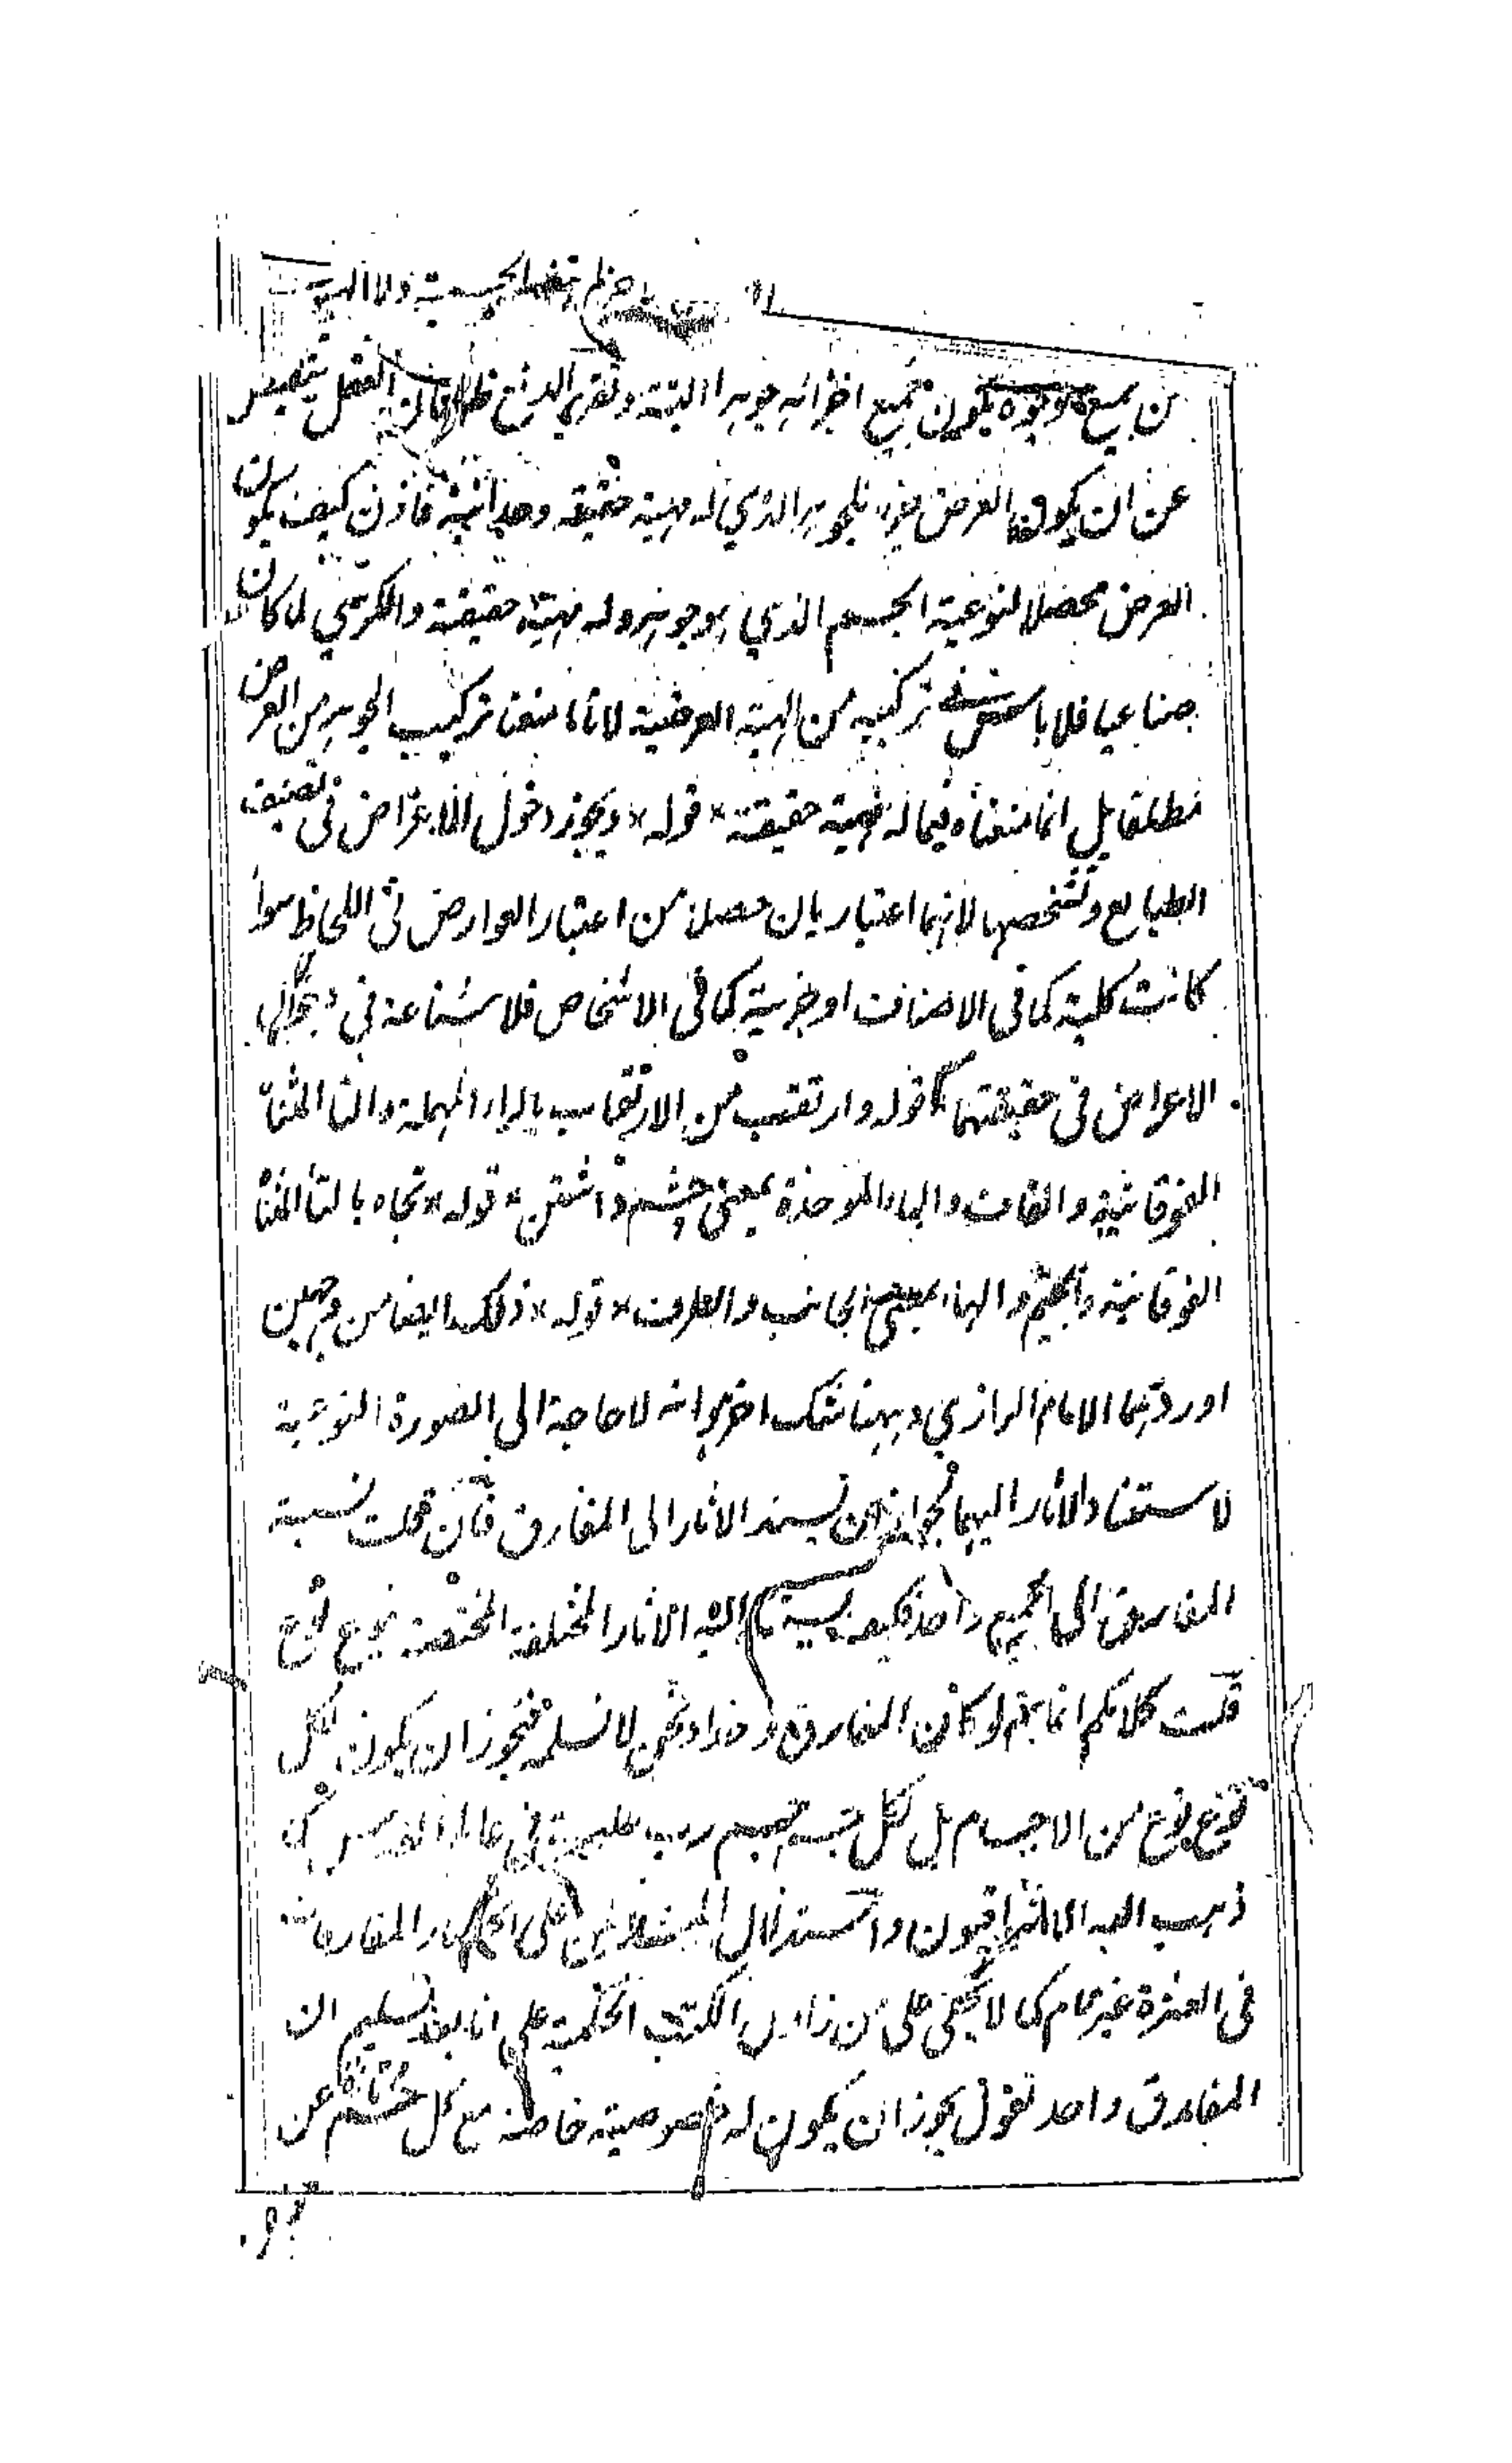 الجسمية ولا الهية
من جميع الوجوه يكون جميع اجزائه جوهرا البتة وتقرير الدفع ظاهر فان العقل يتحصر
عن ان يكون العرض جزء للجوهر الذي له مهية حقيقة وحدانية فاذن كيف يكون
العرض محصلا لنوعية الجسم الذي هو جوهر وله مهية حقيقة والكرسي لما كان
صناعيا فلا باس في تركيبه من الهية العرضية لانا ما منعنا تركيب الجوهر من العرض
مطلقا بل انما منعناه فيما له مهية حقيقة * قوله * ويجوز دخول الاعراض في تصنيف
الطبايع وتشخصها لانهما اعتباريان حصلا من اعتبار العوارض في اللحاظ سواء
كانت كلية كما في الاصناف او جزئية كما في الاشخاص فلا شناعة في دخول
الاعراض في حقيقتهما * قوله وارتقب من الارتقاب بالراء المهملة والتا المثناة
الفوقانية والقاف والباء الموحدة بمعنى چشم داشتن * قوله * تجاه بالتا المثناة
الفوقانية والجيم والهاء بمعنى الجانب والطرف * قوله * ذلك ايضا من وجهين
اوردهما الامام الرازي وههنا شك اخر هو انه لا حاجة الى الصورة النوعية
لاستناد الاثار اليها لجواز ان يستند الاثار الى المفارق فان قلت نسبة
المفارق الى الجميع واحد فكيف يستند اليه الاثار المختلفة المختصة بنوع نوع
قلت كلامكم انما يتم لو كان المفارق واحدا ونحن لا نسلمه فيجوز ان يكون لكل
نوع نوع من الاجسام بل لكل جسم جسم رب عليحدة في عالم القدس كما
ذهب اليه الاشراقيون واستدلال المشائين على انحصار المفارقات
في العشرة غير تمام كما لا يخفى على من زاول الكتب الحكمية على انا بعد تسليم ان
المفارق واحد نقول يجوز ان يكون له خصوصية خاصة مع كل جسم عن